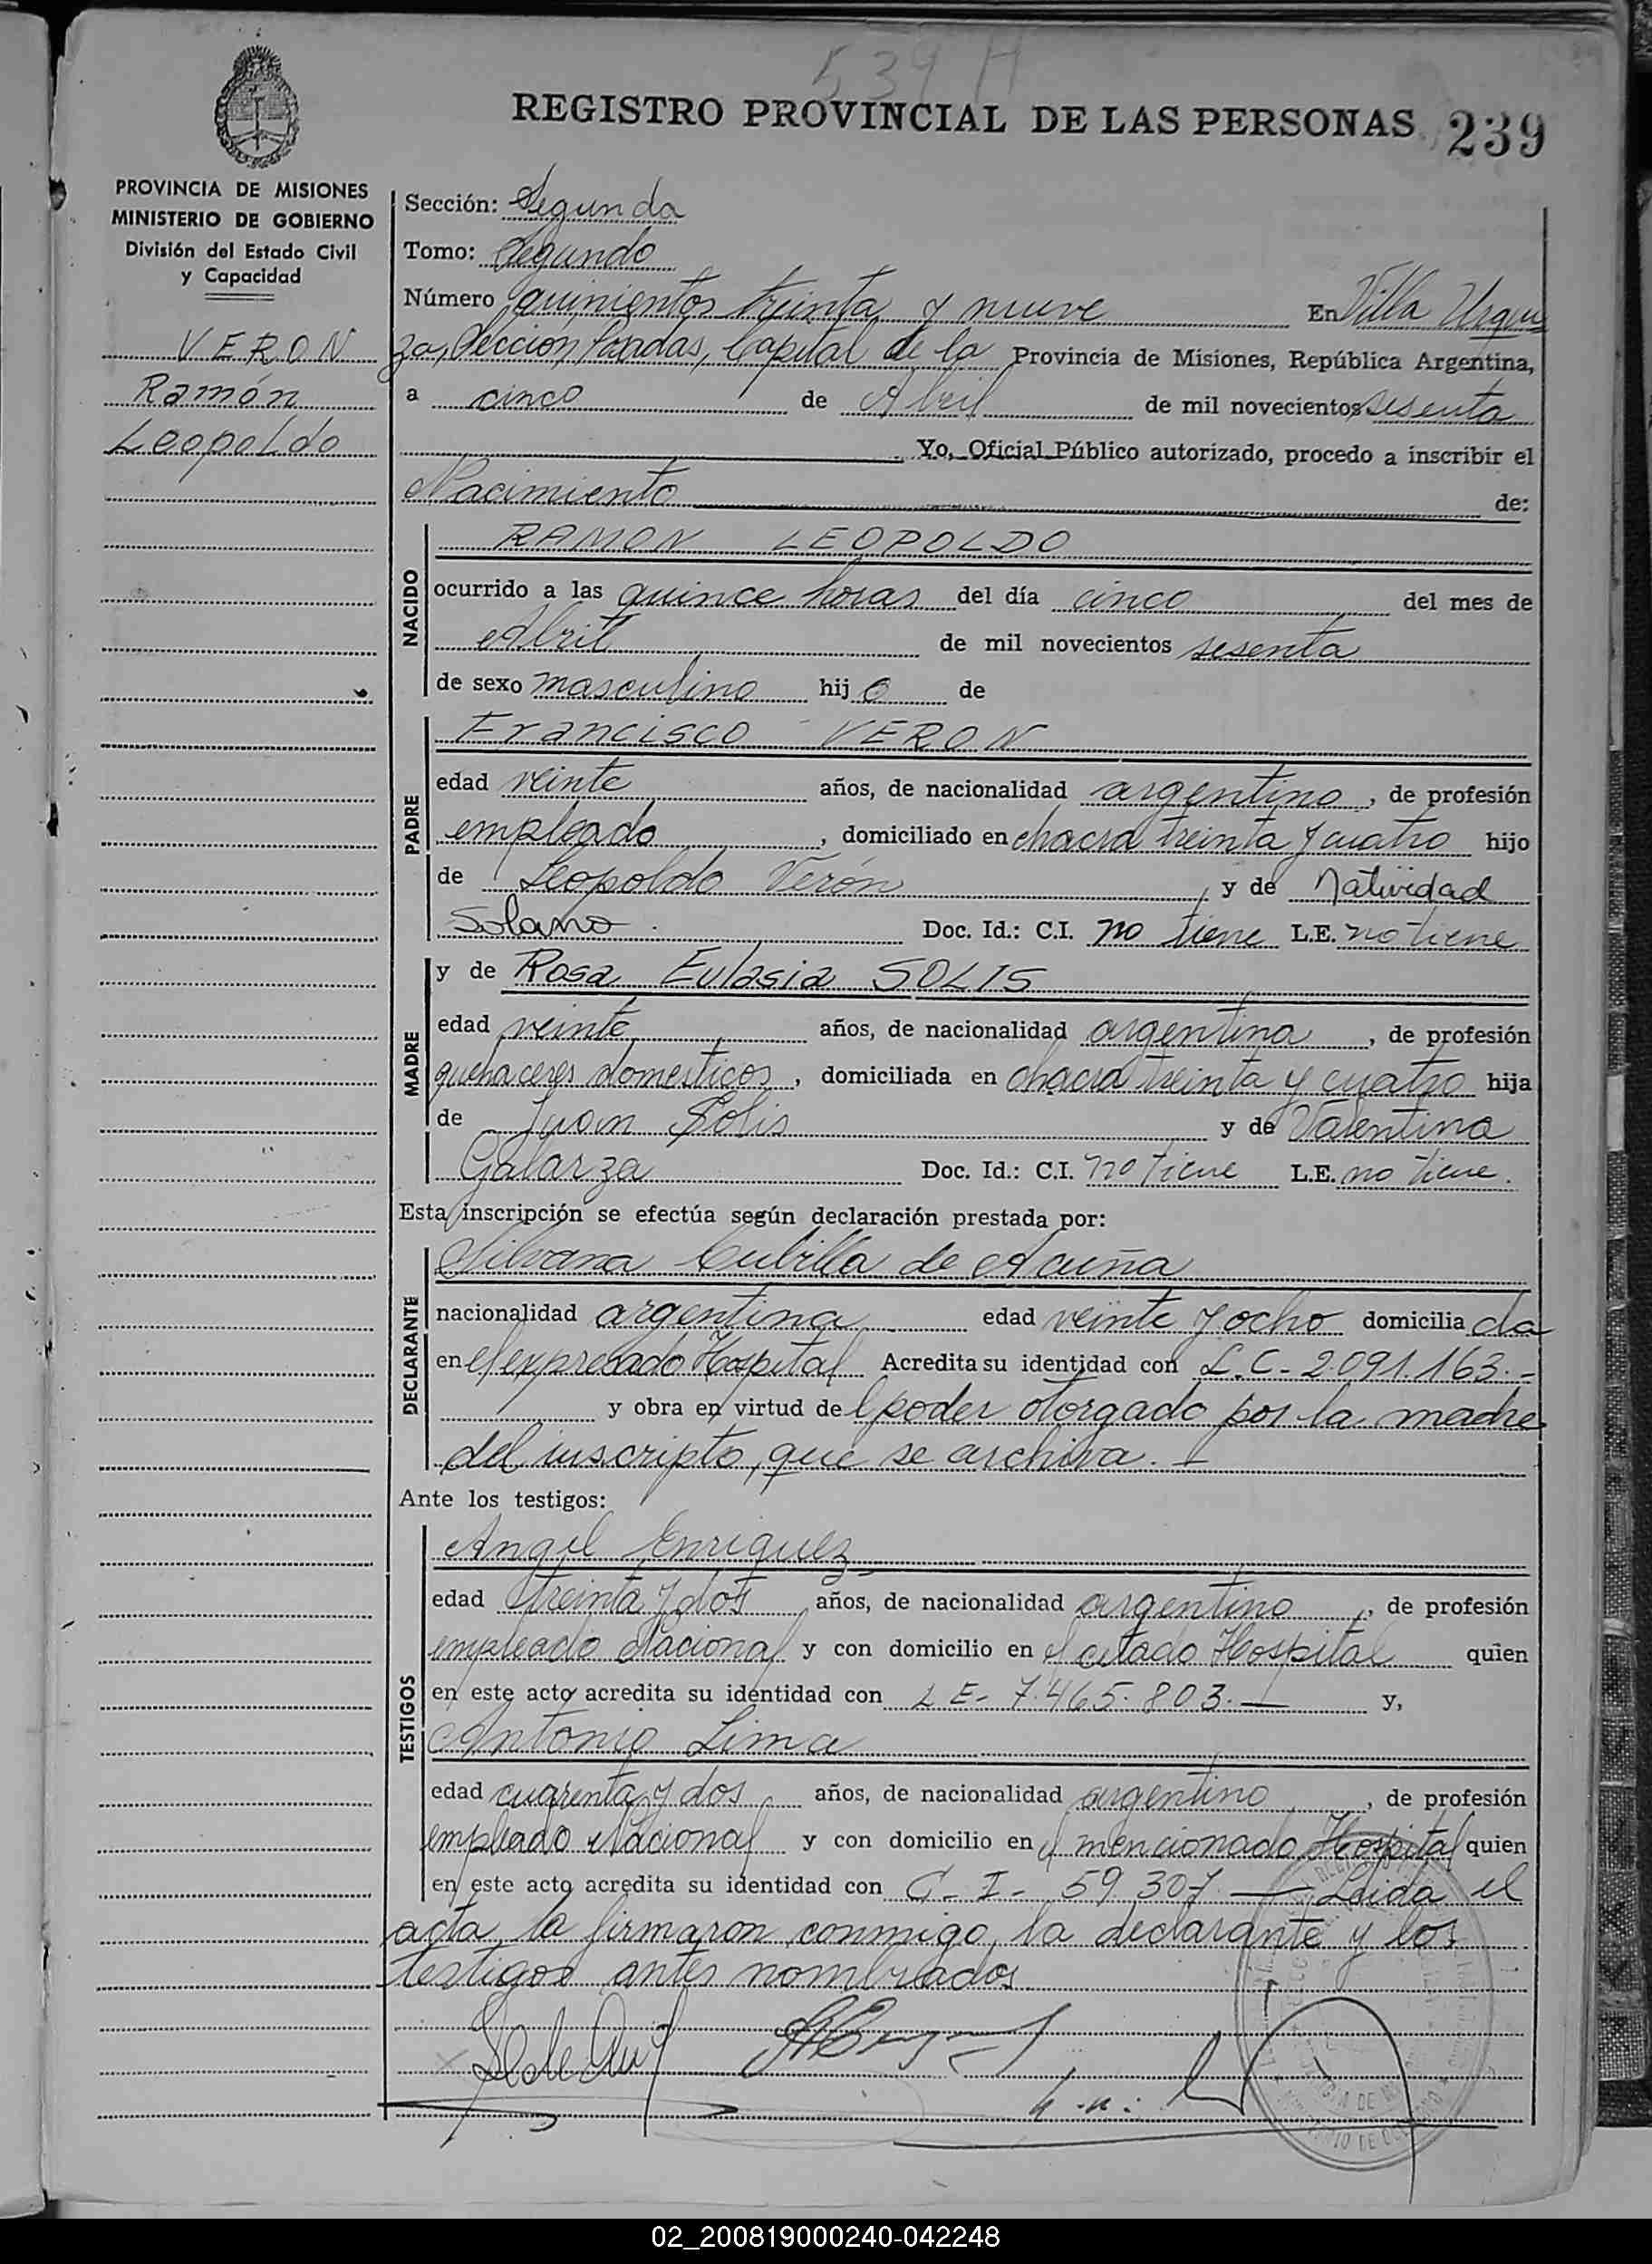 539 A
REGISTRO PROVINCIAL DE LAS PERSONAS 239
PROVINCIA DE MISIONES
MINISTERIO DE GOBIERNO
División del Estado Civil
y Capacidad
VERON
Ramón
Leopoldo
Sección: Segunda
Tomo: Segundo
Número quinientos treinta y nueve En Villa Urqui
za, Sección Posadas, Capital de la Provincia de Misiones, República Argentina,
a cinco de Abril de mil novecientos sesenta
Yo, Oficial Público autorizado, procedo a inscribir el
Nacimiento de:
NACIDO
RAMON LEOPOLDO
ocurrido a las quince horas del día cinco del mes de
Abril de mil novecientos sesenta
de sexo masculino hijo de
PADRE
Francisco VERON
edad veinte años, de nacionalidad argentino, de profesión
empleado, domiciliado en chacra treinta y cuatro hijo
de Leopoldo Verón y de Natividad
Solano Doc. Id.: C.I. no tiene L.E. no tiene
MADRE
y de Rosa Eulasia SOLIS
edad veinte años, de nacionalidad argentina, de profesión
quehaceres domesticos, domiciliada en chacra treinta y cuatro hija
de Juan Solis y de Valentina
Galarza Doc. Id.: C.I. no tiene L.E. no tiene.
Esta inscripción se efectúa según declaración prestada por:
DECLARANTE
Silvana Cubilla de Acuña
nacionalidad argentina edad veinte y ocho domiciliada
en el expresado Hospital Acredita su identidad con L.C- 2.091.163.-
y obra en virtud del poder otorgado por la madre
del inscripto, que se archiva. -
Ante los testigos:
TESTIGOS
Angel Enriquez
edad treinta y dos años, de nacionalidad argentino, de profesión
empleado Nacional y con domicilio en el citado Hospital quien
en este acto acredita su identidad con L E- 7.465.803.— y,
Antonio Lima
edad cuarenta y dos años, de nacionalidad argentino, de profesión
empleado Nacional y con domicilio en el mencionado Hospital quien
en este acto acredita su identidad con C- I- 59.307 — Leida el
acta, la firmaron conmigo, la declarante y los
testigos antes nombrados
02_200819000240-042248